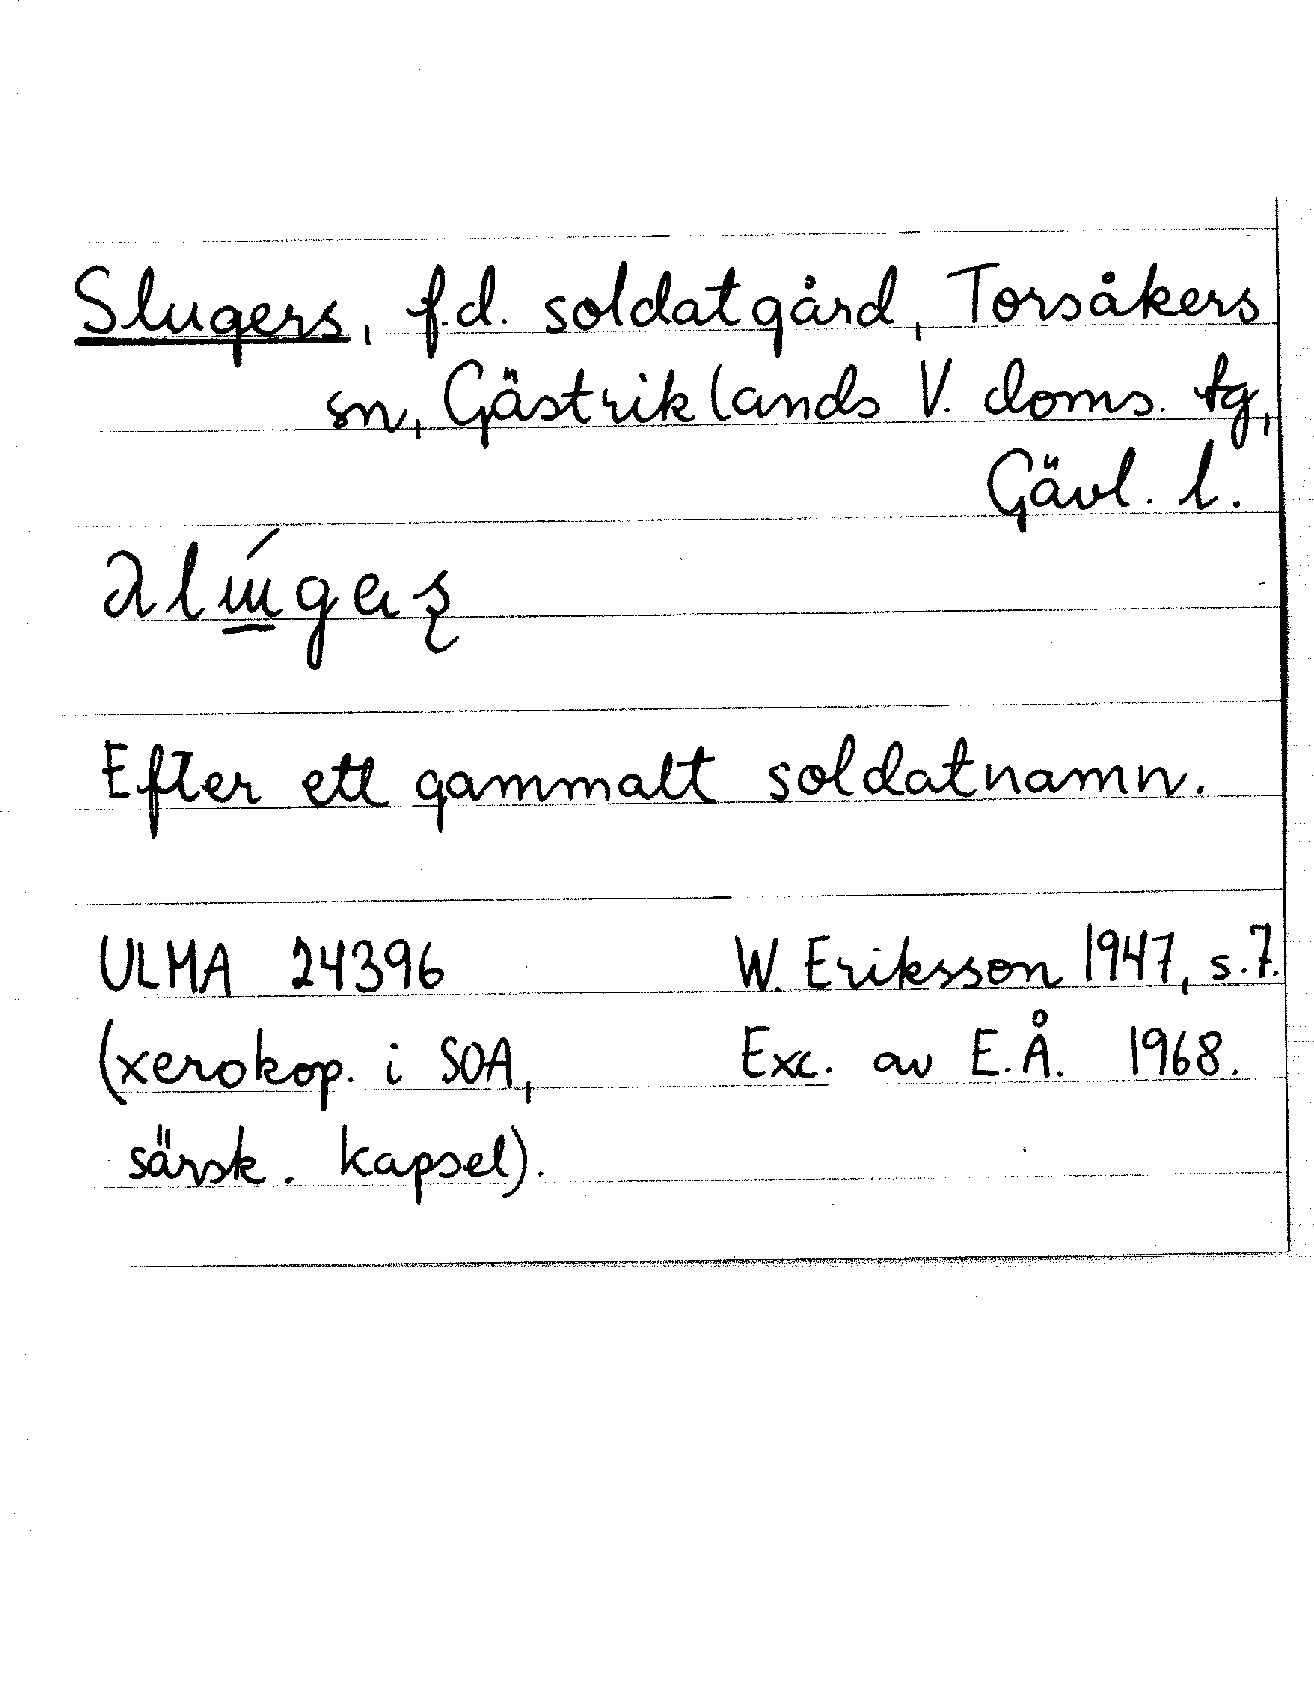 Slugers, f.d. soldatgård, Torsåkers
sn, Gästriklands V. doms. tg,
Gävl. l.
Efter ett gammalt soldatnamn.
ULMA 24396 W. Eriksson 1947, s.7.
(xerokop. i SOA, Exc. av E.Å. 1968.
särsk. kapsel).